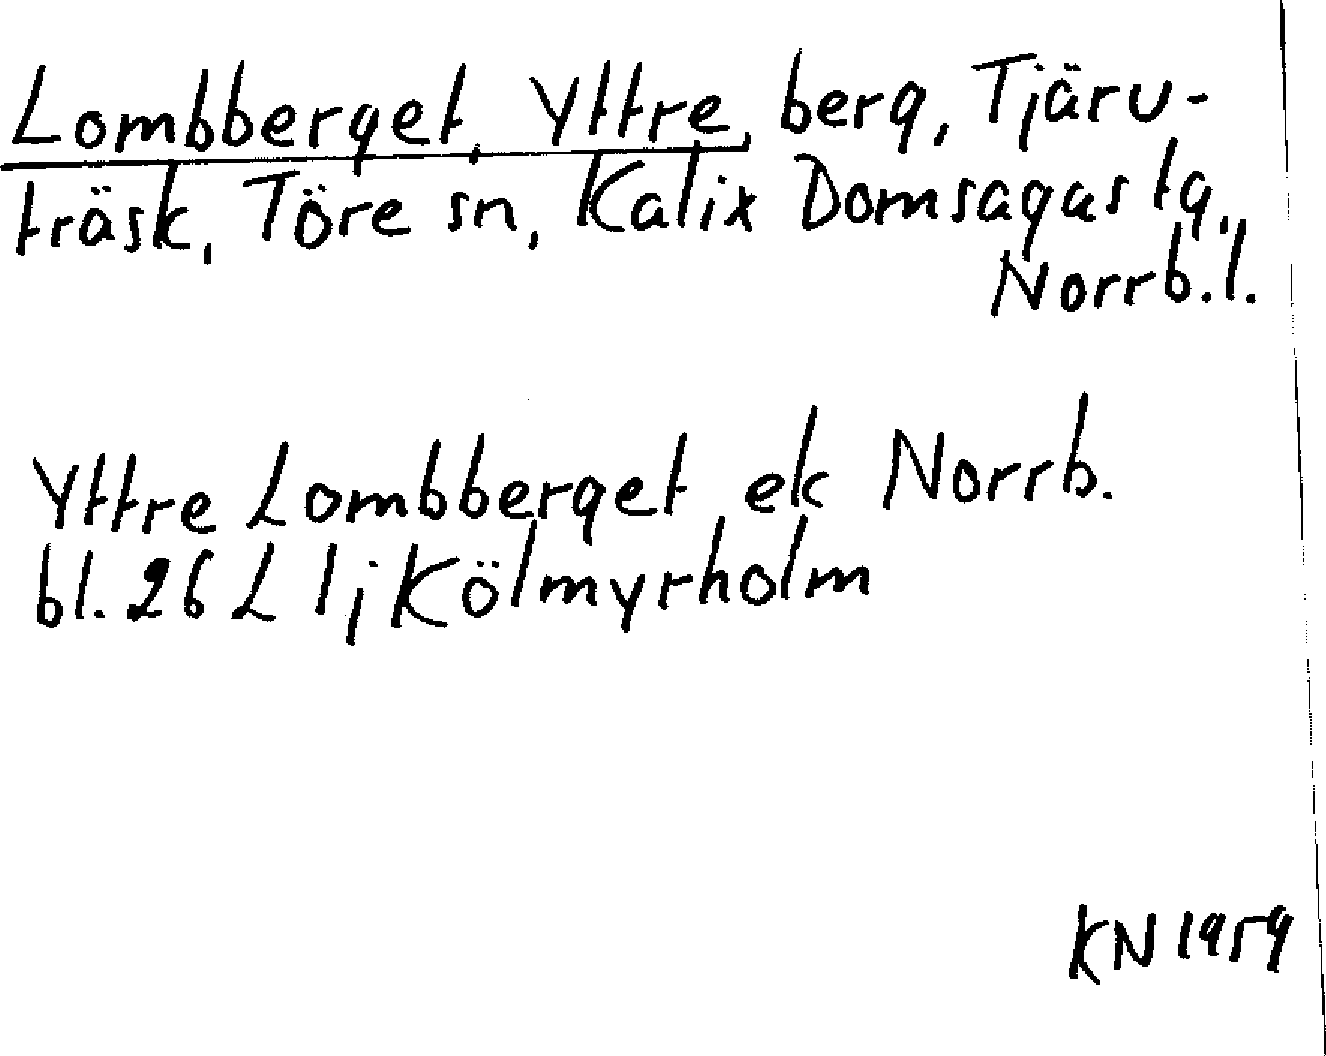 Lombberget, Yttre, berg, Tjäru-
träsk, Töre sn, Kalix Domsagas tg,
Norrb.l.
Yttre Lombberget ek Norrb.
bl. 26 L 1; Kölmyrholm
KN 1959